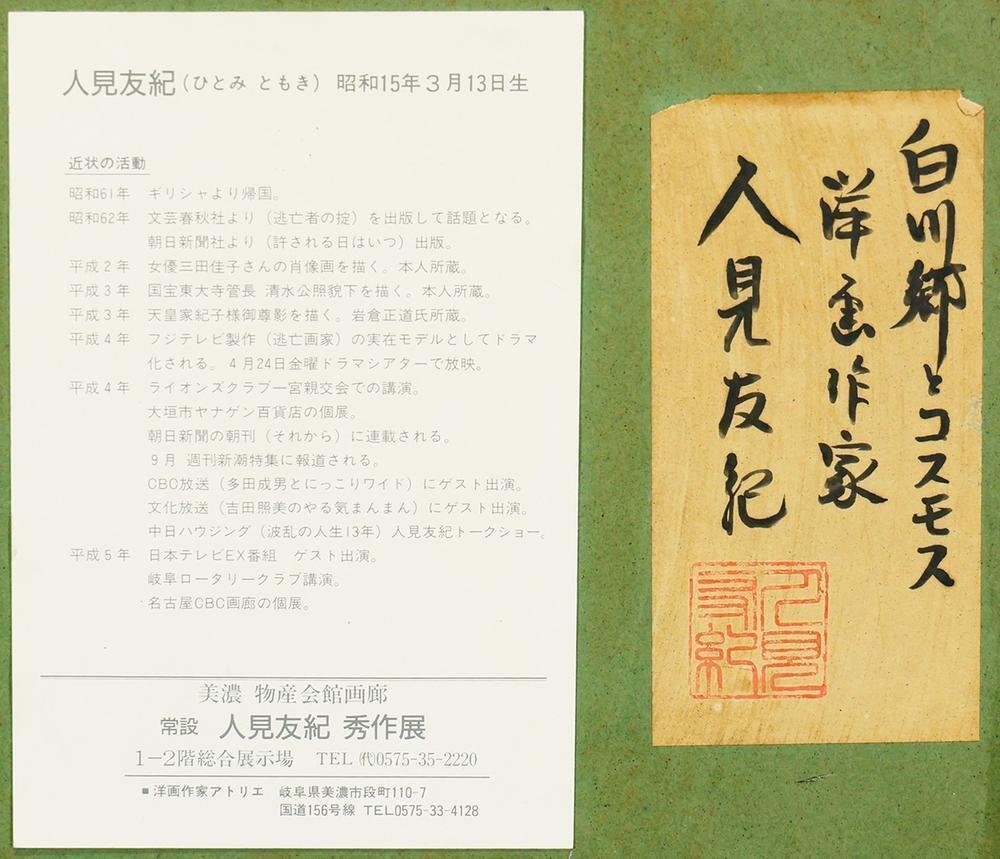 人見友紀(ひとみ ともき) 昭和15年3月13日生
近状の活動
昭和61年 ギリシャより帰国。
昭和62年 文芸春秋社より（逃亡者の掟）を出版して話題となる。
朝日新聞社より（許される日はいつ）出版。
平成2年 女優三田佳子さんの肖像画を描く。本人所蔵。
平成3年 国宝東大寺管長 清水公照猊下を描く。本人所蔵。
平成3年 天皇家紀子様御尊影を描く。岩倉正道氏所蔵。
平成4年 フジテレビ製作（逃亡画家）の実在モデルとしてドラマ
化される。4月24日金曜ドラマシアターで放映。
平成4年 ライオンズクラブ一宮親交会での講演。
大垣市ヤナゲン百貨店の個展。
朝日新聞の朝刊（それから）に連載される。
9月 週刊新潮特集に報道される。
CBC放送（多田成男とにっこりワイド）にゲスト出演。
文化放送（吉田照美のやる気まんまん）にゲスト出演。
中日ハウジング（波乱の人生13年）人見友紀トークショー。
平成5年 日本テレビEX番組 ゲスト出演。
岐阜ロータリークラブ講演。
名古屋CBC画廊の個展。
美濃 物産会館画廊
常設 人見友紀 秀作展
1−2階総合展示場 TEL(代)0575-35-2220
■洋画作家アトリエ 岐阜県美濃市段町110-7
国道156号線 TEL0575-33-4128
白川郷とコスモス
洋画作家
人見友紀
人見
友紀